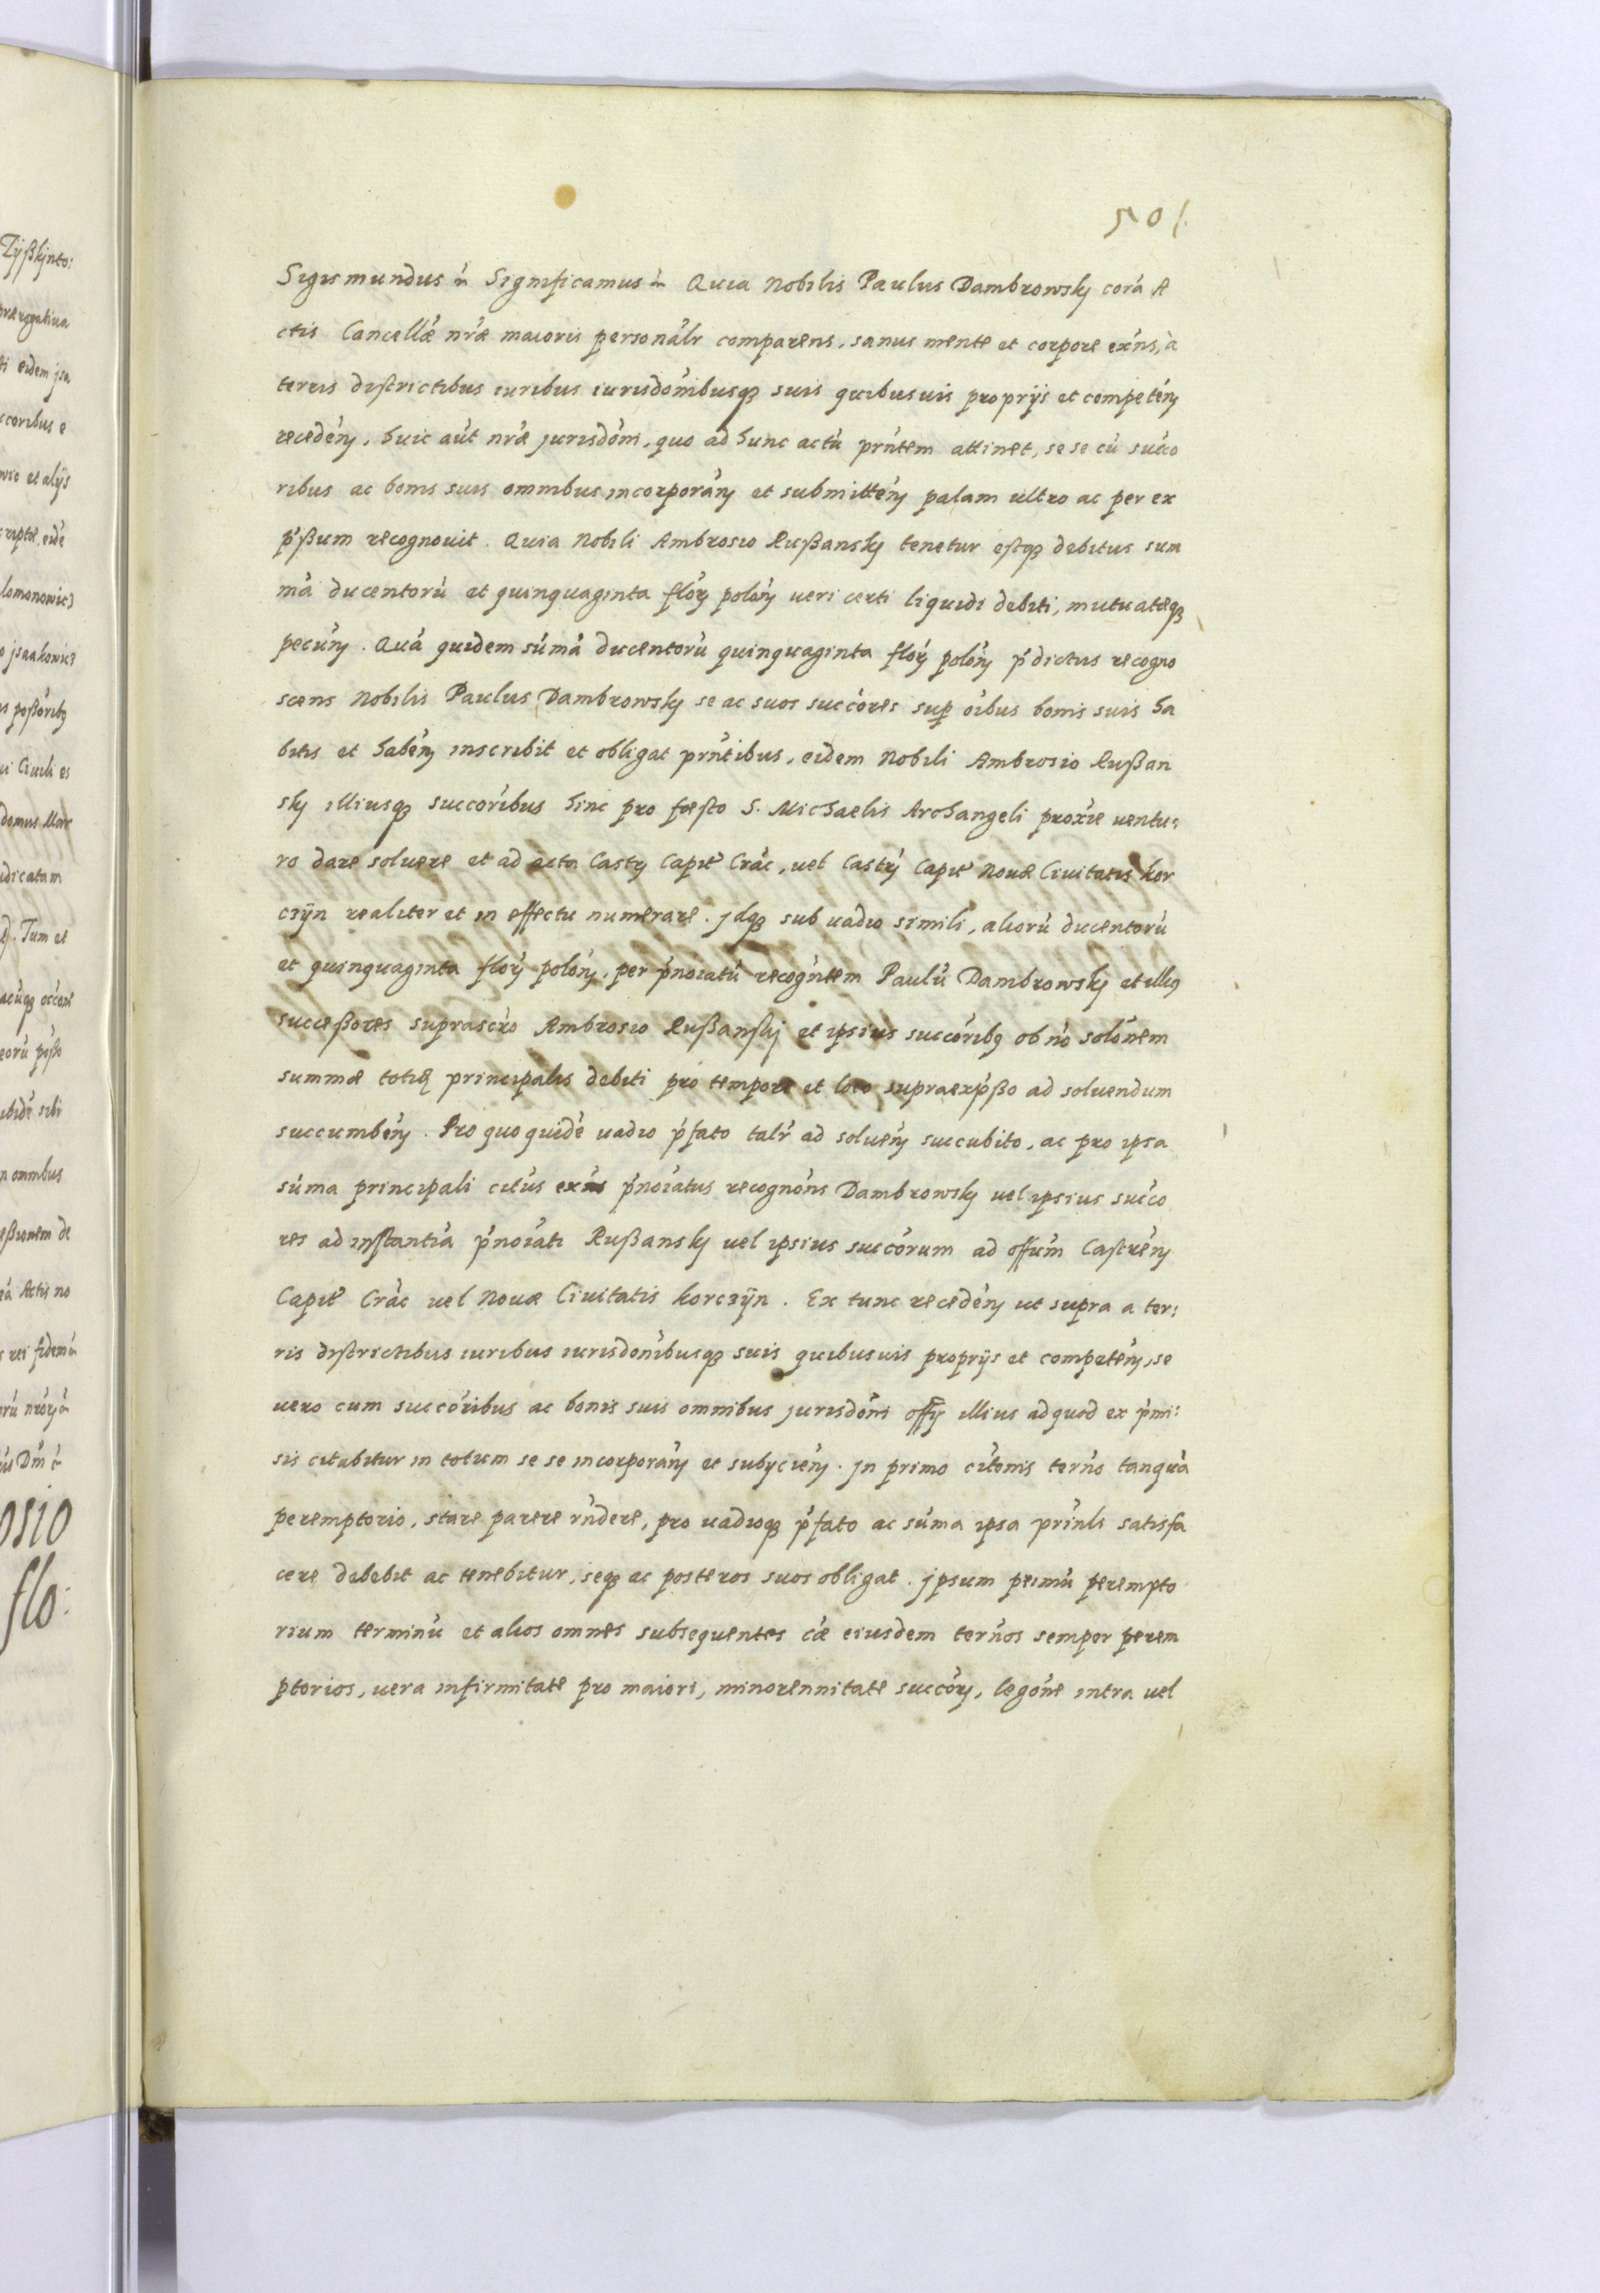 501.
Sigismundus etc Significamus etc Quia Nobilis Paulus Dambrowskj corã A
ctis Cancellæ nr̃æ maioris personãlr comparens, sanus mente et corpore exñs, à
terris districtibus iuribus iurisdõnibusq3 suis quibusuis proprijs et competeñ
recedeñ, huic aũt nr̃æ jurisdõni, quo ad hunc actũ prñtem attinet, se se cũ succo
ribus ac bonis suis omnibus incorporañ et submitteñ palam ultro ac per ex
p̃ßum recognouit. Quia Nobili Ambrosio Rußanskj tenetur estq3 debitus sum
mã ducentorũ et quinquaginta flor̃ poloñ ueri certi liquidi debiti, mutuatæq3
pecuñ. Quã quidem sũmã ducentorũ quinquaginta flor̃ poloñ p̃dictus recogno
scens Nobilis Paulus Dambrowskj se ac suos succõres sup oĩbus bonis suis ha
bitis et habeñ inscribit et obligat prñtibus, eidem Nobili Ambrosio Rußan
skj illiusq3 succõribus hinc pro fæsto S. Michaelis Archangeli proxĩe uentu:
ro dare soluere et ad acta Castr̃ Capit̃ Crac̃, uel Castr̃ Capit̃ Nouæ Ciuitatis Kor
czÿn realiter et in effectu numerare. jdq3 sub uadio simili, aliorũ ducentorũ
et quinquaginta flor̃ poloñ, per p̃noĩatũ recogñtem Paulũ Dambrowskj et illi9
successores suprascr̃o Ambrosio Rußanskj et ipsius succõrib9 ob nõ solõnem
summæ toti9 principalis debiti pro tempore et loco supraexp̃ßo ad soluendum
succumbeñ. Pro quo quidẽ uadio p̃fato talr̃ ad solueñ succubito, ac pro ipsa
sũma principali citũs exñs p̃noĩatus recognõns Dambrowskj uel ipsius succo
res ad instantiã p̃noĩati Rußanskj uel ipsius succõrum ad offum̃ Castreñ
Capit̃ Crac̃ uel Nouæ Ciuitatis Korczÿn. Ex tunc recedeñ ut supra a ter:
ris districtibus iuribus iurisdõnibusq3 suis quibusuis proprijs et competeñ, se
uero cum succõribus ac bonis suis omnibus jurisdõni offÿ illius ad quod ex p̃mi:
sis citabitur in totum se se incorporañ et subÿcieñ. Jn primo citõnis terñno tanquã
peremptorio, stare parere rñdere, pro uadioq3 p̃fato ac sũma ipsa prinl̃i satisfa
cere debebit ac tenebitur, seq3 ac posteros suos obligat. jpsum primũ perempto
rium terminũ et alios omnes subsequentes cãæ eiusdem terñnos semper perem
ptorios, uera infirmitate pro maiori, minorennitate succor̃, legõne intra uel